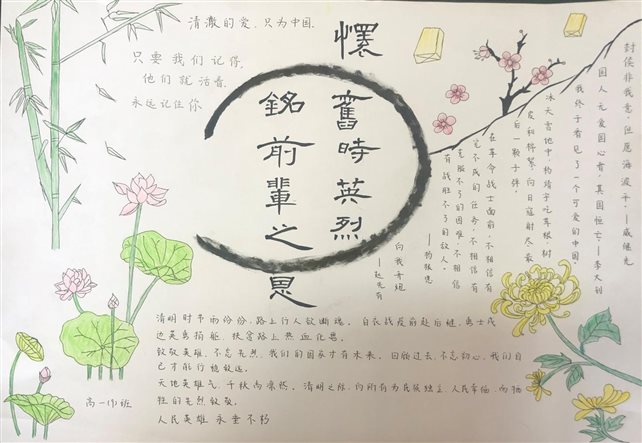 清澈的爱，只为中国.
只要我们记得，
他们就活着，
永远记住你
懷舊時英烈
銘前輩之恩
封侯非我意，但愿海波平。——戚继光
国人无爱国心者，其国恒亡。——李大钊
我终于看见了一个可爱的中国。
冰天雪地中，杨靖宇吃草根，树
皮和棉絮，向日寇射尽最
后一颗子弹。
在革命战士面前，不相信有
完不成的任务，不相信有
克服不了的困难，不相信
有战胜不了的敌人。
向我开炮
清明时节雨纷纷，路上行人欲断魂。白衣战疫前赴后继，勇士戍
边英勇捐躯，扶贫路上热血化恩。
致敬英雄，不忘先烈，我们的国家才有未来。回顾过去，不忘初心，我们自
己才能行稳致远。
天地英雄气，千秋尚凛然。清明之际，向所有为民族独立，人民幸福，而牺
牲的先烈致敬。
人民英雄永垂不朽
高一(1)班